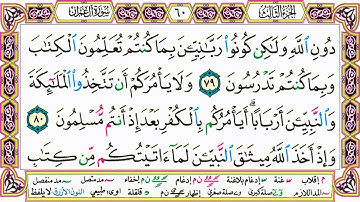 الجزء الثالث ٦٠ سورة آل عمران
دُونِ ٱللَّهِ وَلَٰكِن كُونُوا۟ رَبَّٰنِيِّـۧنَ بِمَا كُنتُمْ تُعَلِّمُونَ ٱلْكِتَٰبَ
وَبِمَا كُنتُمْ تَدْرُسُونَ ٧٩ وَلَا يَأْمُرَكُمْ أَن تَتَّخِذُوا۟ ٱلْمَلَٰٓئِكَةَ
وَٱلنَّبِيِّـۧنَ أَرْبَابًا ۗ أَيَأْمُرُكُم بِٱلْكُفْرِ بَعْدَ إِذْ أَنتُم مُّسْلِمُونَ ٨٠
وَإِذْ أَخَذَ ٱللَّهُ مِيثَٰقَ ٱلنَّبِيِّـۧنَ لَمَآ ءَاتَيْتُكُم مِّن كِتَٰبٍ